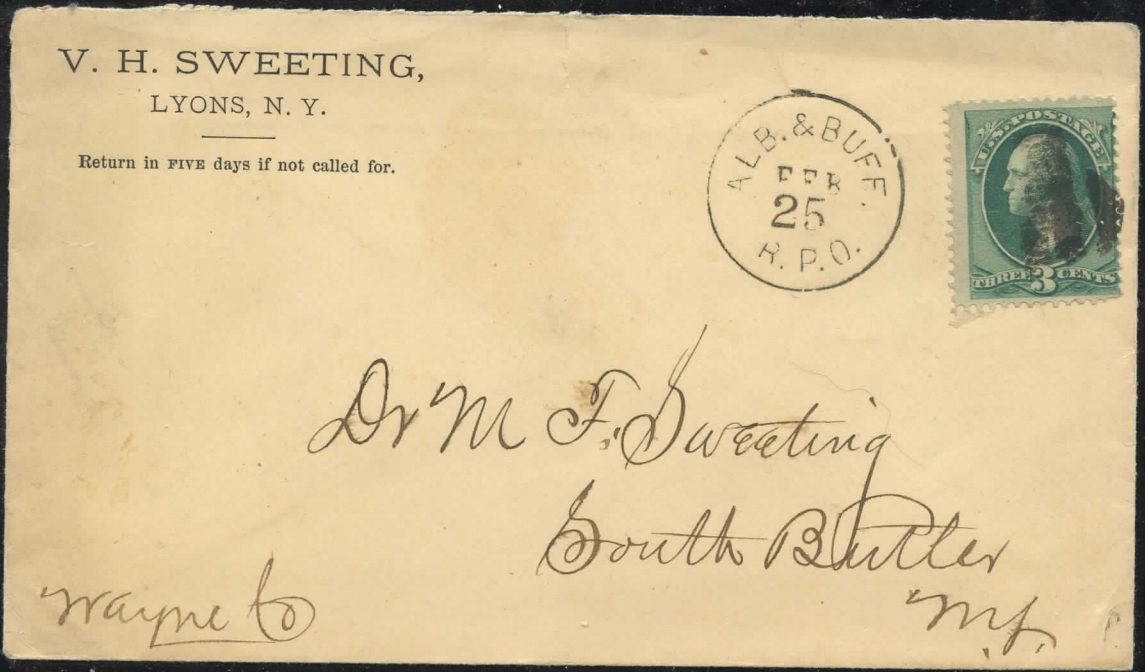 V. H. SWEETING,
LYONS, N. Y.
Return in FIVE days if not called for.
ALB. & BUFF.
FEB
25
R. P. O.
U.S. POSTAGE
THREE 3 CENTS
Dr M F. Sweeting
South Butler
Wayne Co
N.Y.